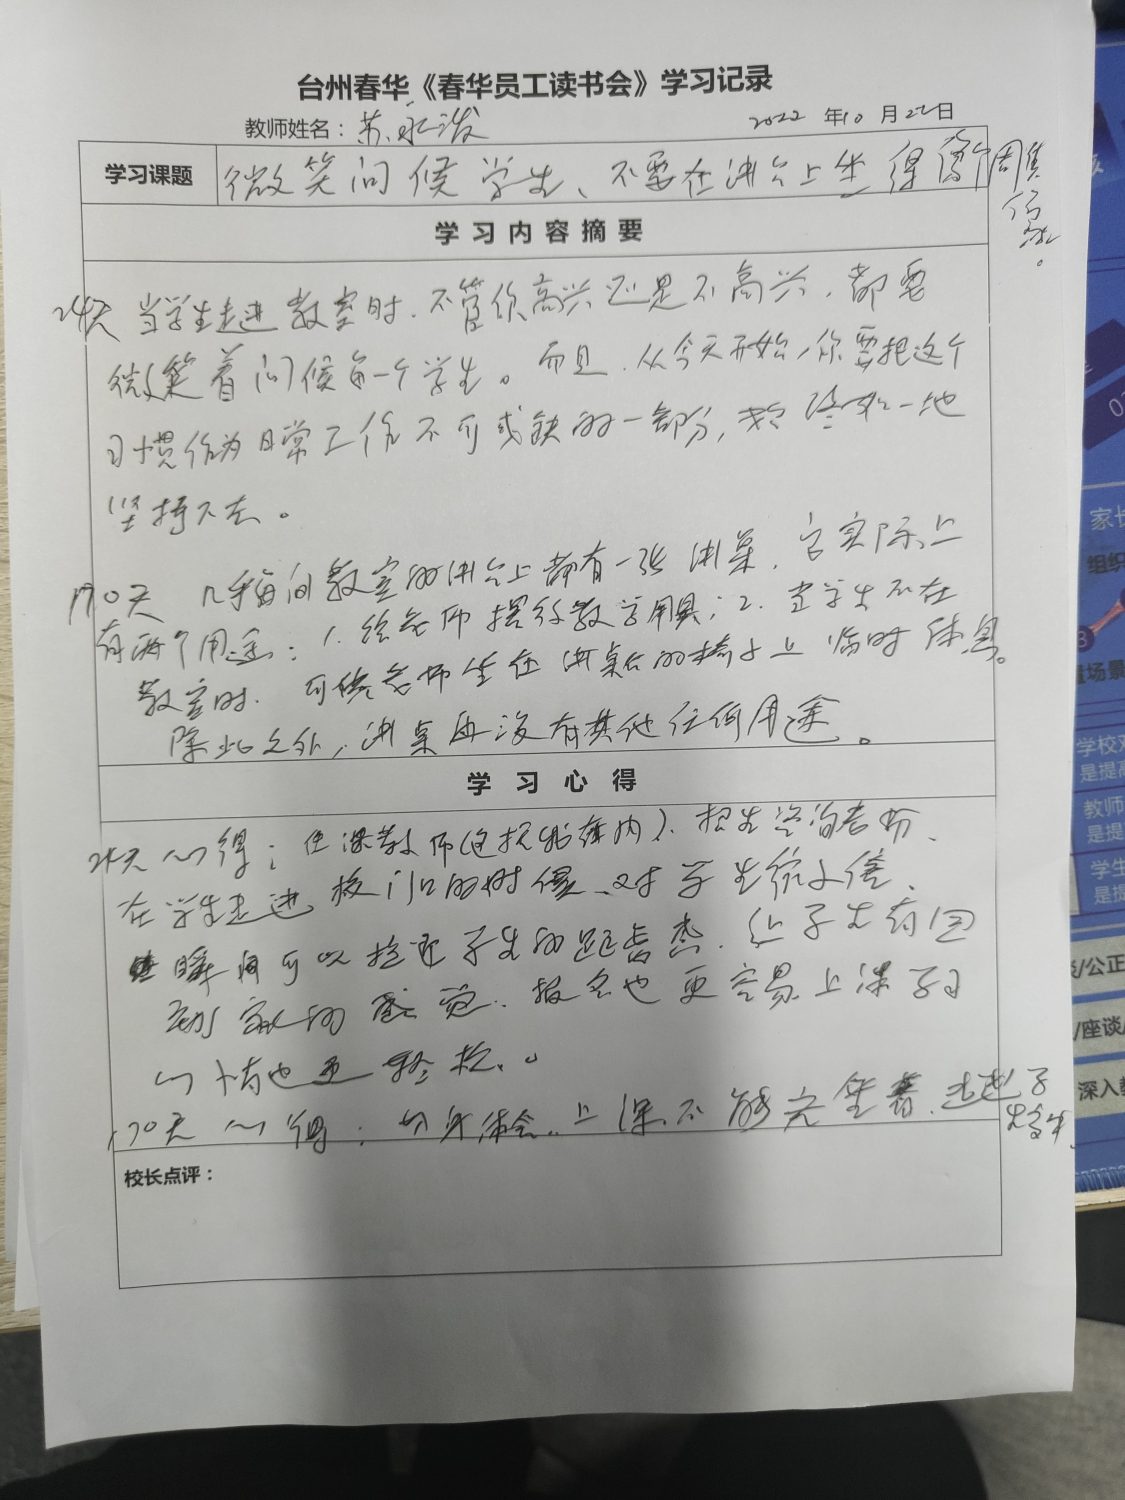 台州春华《春华员工读书会》学习记录
教师姓名：苏永泼
2022 年10 月22日
学习课题
微笑问候学生、不要在讲台上坐 得 周集
学 习 内 容 摘 要
24天 当学生走进教室时，不管你高兴还是不高兴，都要
微笑着问候每一个学生。而且，从今天开始，你要把这个
习惯作为日常工作不可或缺的一部分，始终如一地
坚持不去。
170天 几乎每间教室的讲台上都有一张讲桌，它实际上
有两个用途：1. 给老师摆行教学用具；2. 当学生不在
教室时，可供老师坐在讲桌后的椅子上临时休息。
除此之外，讲桌再没有其他任何用途。
学 习 心 得
24天心得：任课教师(包括班内)、招生咨询老师、
在学生走进校门口的时候、对学生微笑
瞬间可以拉近学生的距离，让学生有回
到家的感觉，报名也更容易，上课学习
心情也更轻松。
170天心得：切身体会，上课不能光坐着，走进学
生
校长点评：
家长
组织
场景
学校对
是提高
教师
是提
学生
是提
/公正
/座谈
深入